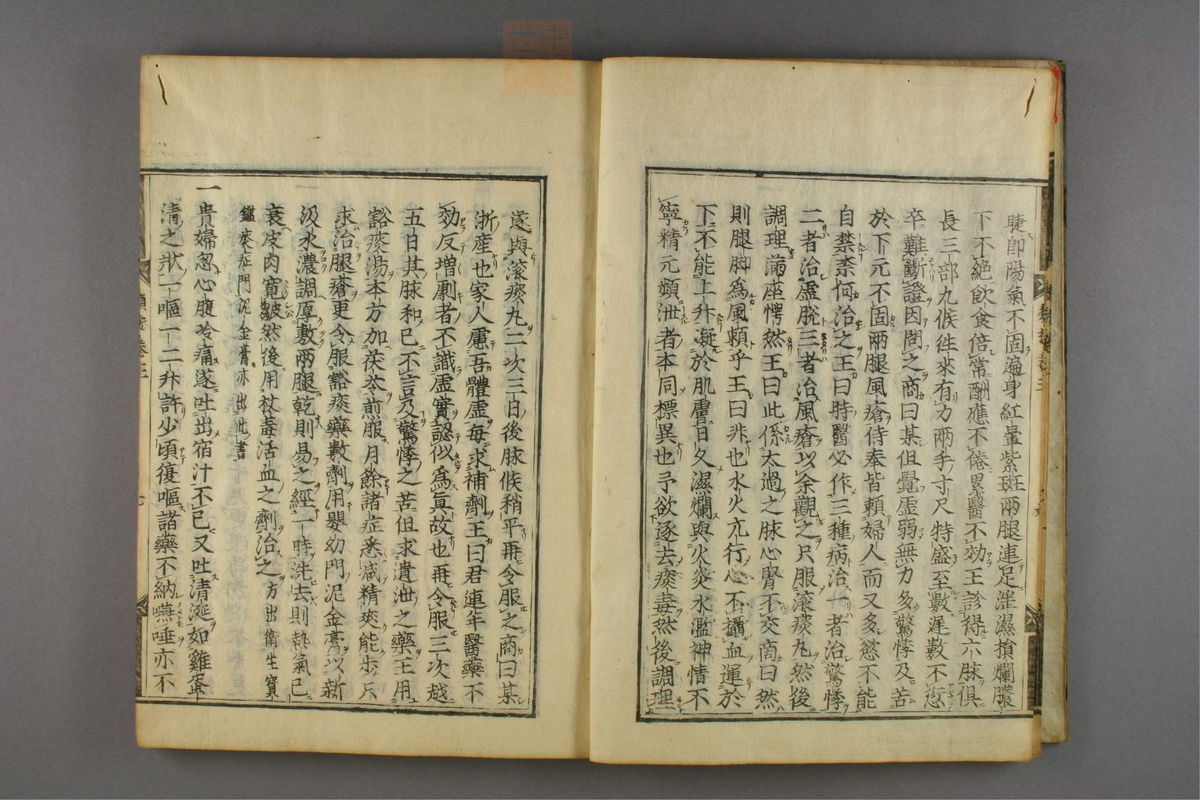 睫卽陽氣不固遍身紅暈紫斑兩腿連足淫濕損爛膿
下不絕飲食倍常酬應不倦累醫不効王診得六脉俱
長三部九候徃來有力兩手寸尺特盛至數遲數不愆
卒難斷證因問之商曰某但覺虛弱無力多驚悸及苦
於下元不固兩腿風瘡侍奉皆賴婦人而又多慾不能
自禁柰何治之王曰時醫必作三種病治一者治驚悸
二者治虛脫三者治風瘡以余觀之只服滚痰丸然後
調理滿座愕然王曰此係太過之脉心腎不交商曰然
則腿脚為風頼乎王曰非也水火亢行心不攝血運於
下不能上升凝於肌膚日久濕爛與火炎水濫神情不
寧精元頻泄者本同標異也予欲逐去痰毒然後調理
遂與滚痰丸二次三日後脉候稍平再令服之商曰某
浙産也家人慮吾體虛每求補劑王曰君連年醫藥不
効反增劇者不識虛實認似為真故也再令服三次越
五日其脉和已不言及驚悸之苦但求遺泄之藥王用
豁痰湯本方加茯苓煎服月餘諸症悉減精爽能步只
求治腿瘡更令服豁痰藥數劑用嬰幼門泥金膏以新
汲水濃調厚敷兩腿乾則易之經一時洗去則熱氣已
衰皮肉寬皺然後用杖毒活血之劑治之方出衛生寶
鑑痰症門泥金膏亦出此書
一貴婦忽心腹冷痛遂吐出宿汁不已又吐清涎如雞蛋
清之狀一嘔一二升許少頃復嘔諸藥不納嚥唾亦不